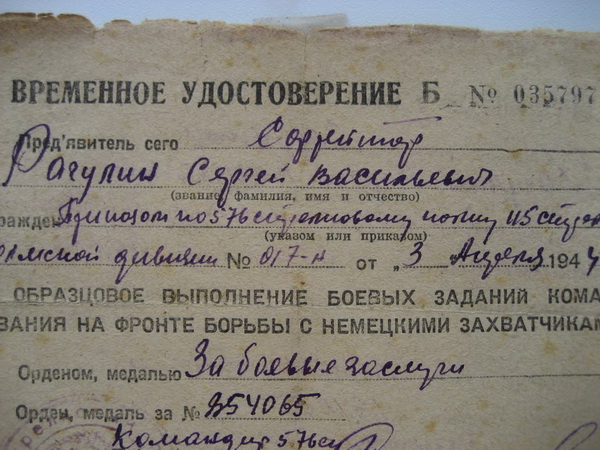 ВРЕМЕННОЕ УДОСТОВЕРЕНИЕ Б № 035797
Пред'явитель сего Ефрейтор
Рагулин Сергей Васильевич
(звание фамилия, имя и отчество)
гражден Приказом по 576 стрелковому полку 115 стрел
(указом или приказом)
дивизии № 017-н от „3 Апреля 194
ОБРАЗЦОВОЕ ВЫПОЛНЕНИЕ БОЕВЫХ ЗАДАНИЙ КОМА
ВАНИЯ НА ФРОНТЕ БОРЬБЫ С НЕМЕЦКИМИ ЗАХВАТЧИКАМ
Орденом, медалью За боевые заслуги
Орден, медаль за № 854065
Командир 576 сп